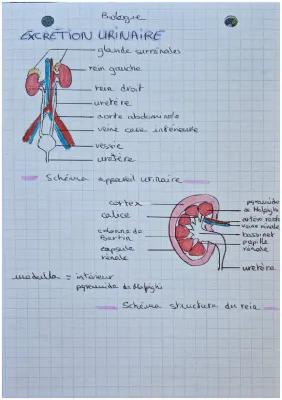 Biologie
EXCRÉTION URINAIRE
glande surrénales
rein gauche
rein droit
uretère
aorte abdominale
veine cave inférieure
vessie
uretère
Schéma appareil urinaire
cortex
calice
colonne de Bertin
capsule rénale
pyramide de Malpighi
artère rénale
veine rénale
bassinet
papille rénale
uretère
medulla = intérieur
pyramide de Malpighi
Schéma structure du rein